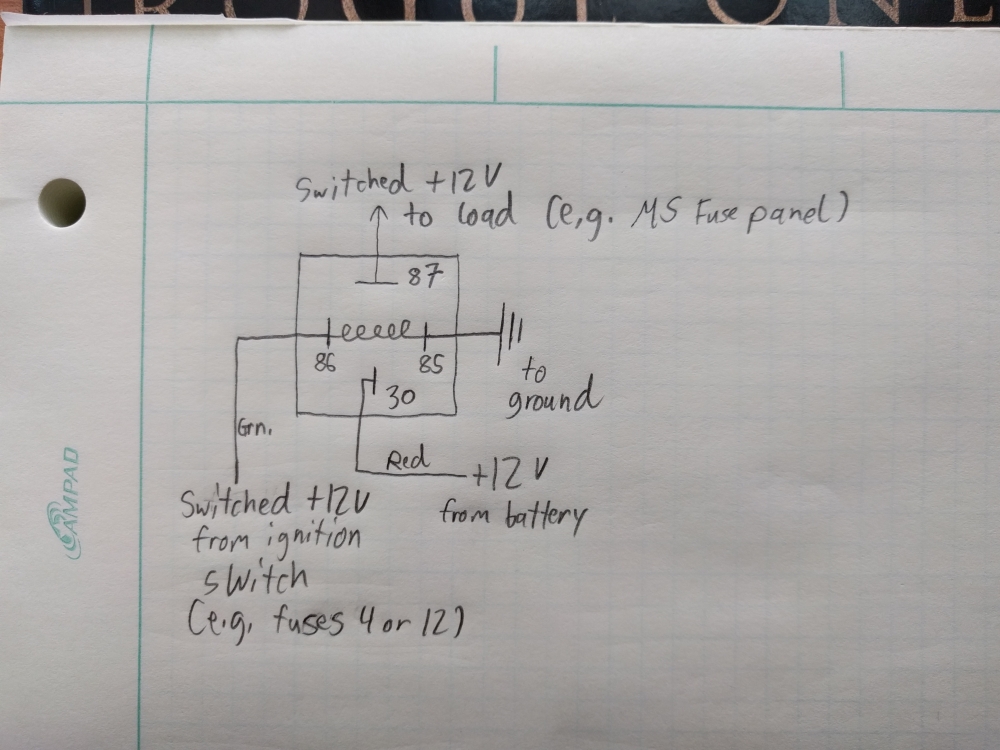 ROGUE ONE
Switched +12V
to load (e.g. MS Fuse panel)
87
86
85
30
to
ground
Grn.
Red
+12V
from battery
Switched +12V
from ignition
switch
(e.g. fuses 4 or 12)
AMPAD